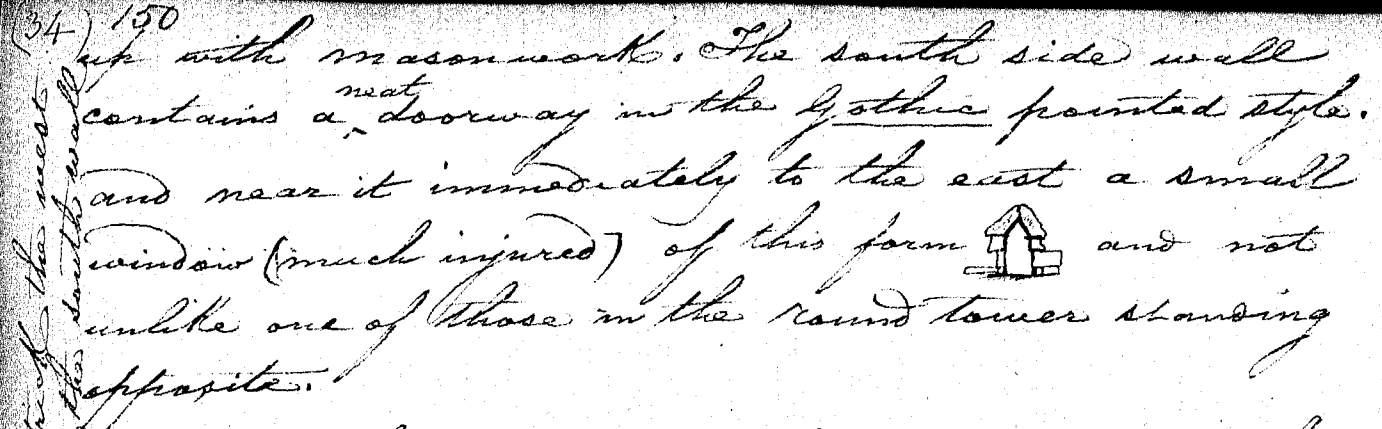 (34) 150
up with masonwork. The south side wall
contains a neat doorway in the Gothic pointed style.
and near it immediately to the east a small
window (much injured) of this form and not
unlike one of those in the round tower standing
opposite.
the west
the south wall